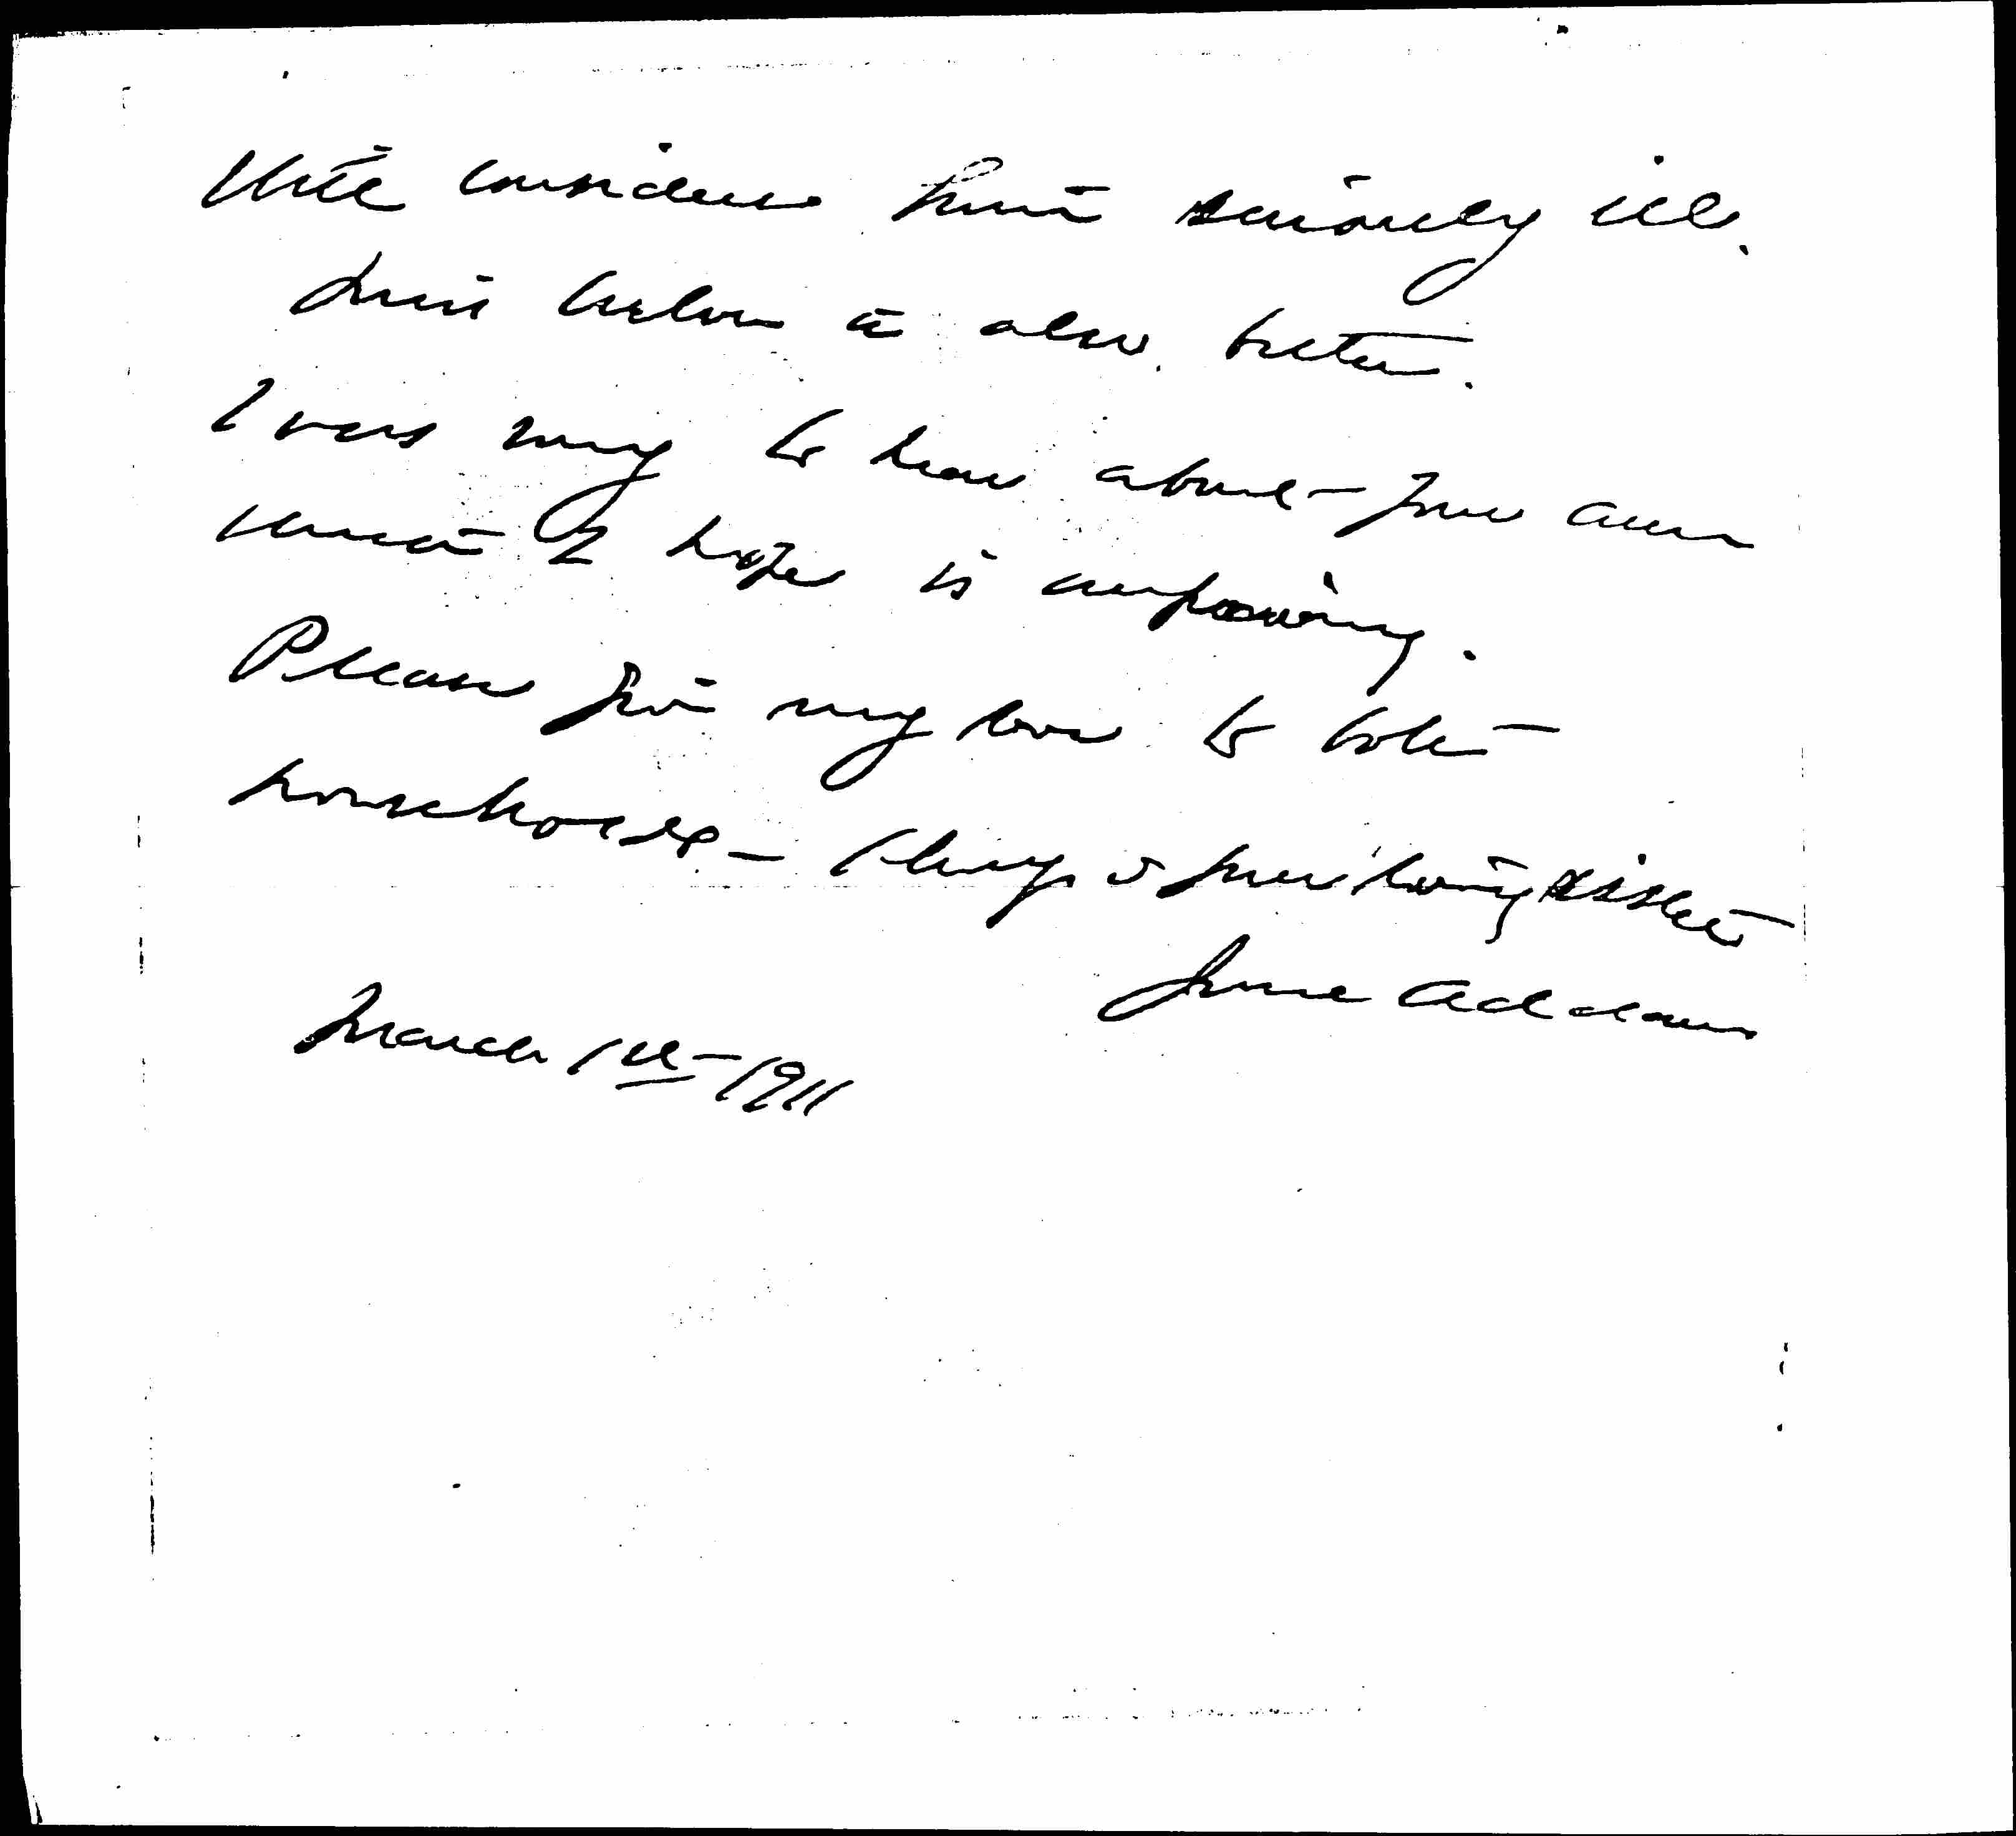 quite considered him seriously ill.
Miss Culver is also better.
I was sorry to hear about your own
I hope is improving.
Please give my love to both
households - Always your loving sister
Jane Addams
March 1st - 1911